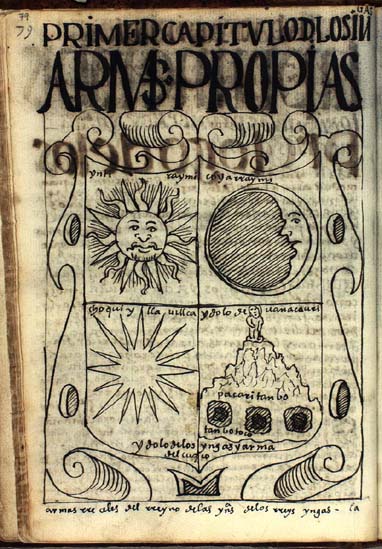 79
79
PRIMER CAPITVLO D LOS IN
GAS
ARMAS PROPIAS
ynti raymi coya rraymi
choqui ylla uillca ydolo de uanacauri
pacaritanbo
tanbotoco
ydolo de los yngas y arma
del cuzco
armas rreales del rreyno de las yn̄s de los rreys yngas - la